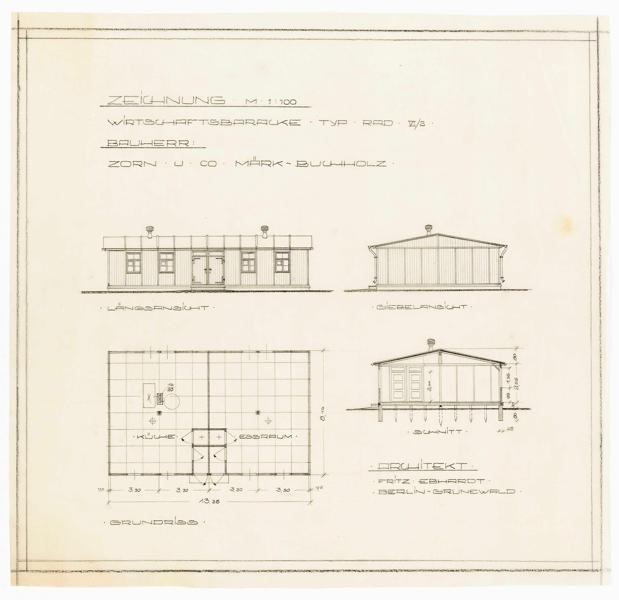 ZEICHNUNG M · 1:100
WIRTSCHAFTSBARACKE · TYP · RAD · VI/3 ·
BAUHERR:
ZORN · U · CO · MÄRK-BUCHHOLZ ·
· LÄNGSANSICHT ·
· GIEBELANSICHT ·
· KÜCHE ·
· ESSRAUM ·
· SCHNITT ·
3,30 3,30 3,30 3,30
13,36
· GRUNDRISS ·
· ARCHITEKT ·
· FRITZ · EBHARDT ·
· BERLIN-GRUNEWALD ·